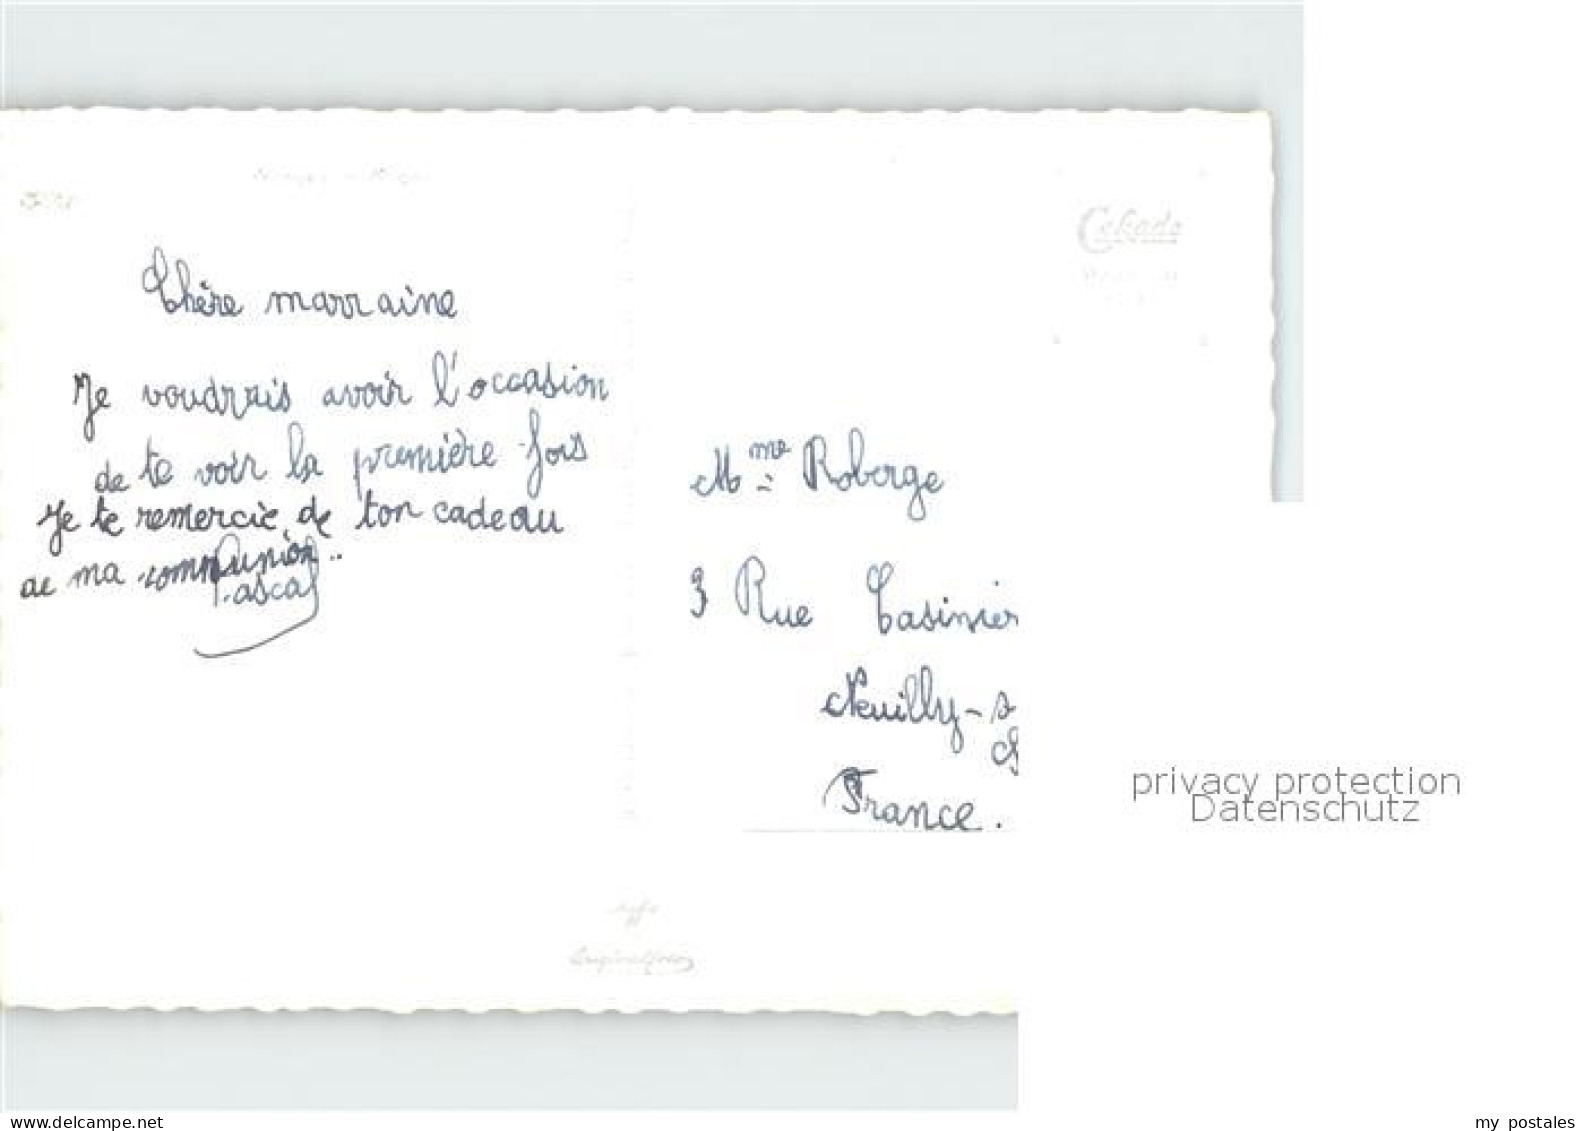 Cekade
Chère marraine
Je voudrais avoir l'occasion
de te voir la première fois
Je te remercie de ton cadeau
de ma communion..
Pascal
Mme Roberge
3 Rue Casimier
Neuilly-s
France.
privacy protection
Datenschutz
delcampe.net
my postales